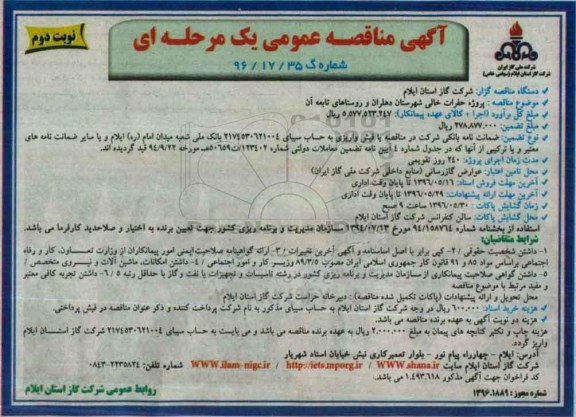 نوبت دوم
آگهی مناقصه عمومی یک مرحله ای
شماره گ ۳۵ / ۱۷ / ۹۶
شرکت ملی گاز ایران
شرکت گاز استان ایلام (سهامی خاص)
دستگاه مناقصه گزار: شرکت گاز استان ایلام
موضوع مناقصه : پروژه حفرات خالی شهرستان دهلران و روستاهای تابعه آن
مبلغ کل برآورد (اجرا + کالای عهده پیمانکار): ۵،۵۷۷،۵۲۳،۲۴۷ ریال
مبلغ تضمین: ۲۷۸،۸۷۷،۰۰۰ ریال
نوع تضمین: ضمانت نامه بانکی شرکت در مناقصه یا فیش واریزی به حساب سیبای ۲۱۷۴۵۳۰۶۲۱۰۰۴ بانک ملی شعبه میدان امام (ره) ایلام و یا سایر ضمانت نامه های
معتبر و یا ترکیبی از آنها که در جدول شماره ۴ آیین نامه تضمین معاملات دولتی شماره ۱۲۳۴۰۲/ت۵۰۶۵۹هـ مورخه ۹۴/۹/۲۲ قید گردیده اند.
مدت زمان اجرای پروژه : ۲۴۰ روز تقویمی
محل تامین اعتبار: عوارض گازرسانی (منابع داخلی شرکت ملی گاز ایران)
آخرین مهلت فروش اسناد: ۱۳۹۶/۰۵/۱۶ تا پایان وقت اداری
آخرین مهلت ارائه پیشنهادات: ۱۳۹۶/۰۵/۲۹ تا پایان وقت اداری
زمان گشایش پاکات : ۱۳۹۶/۰۵/۳۰ ساعت ۹ صبح
محل گشایش پاکات: سالن کنفرانس شرکت گاز استان ایلام
استفاده از بخشنامه شماره ۹۴/۱۵۸۷۶۴ مورخ ۱۳۹۴/۰۷/۱۳ سازمان مدیریت و برنامه ریزی کشور جهت تعیین برنده به اختیار و صلاحدید کارفرما می باشد.
شرایط متقاضیان:
۱- داشتن شخصیت حقوقی / ۲- کپی برابر با اصل اساسنامه و آگهی آخرین تغییرات / ۳- ارائه گواهینامه صلاحیت ایمنی امور پیمانکاران از وزارت تعاون، کار و رفاه
اجتماعی براساس مواد ۸۵ و ۹۱ قانون کار جمهوری اسلامی ایران مصوب ۸۹/۳/۵ وزیر کار و امور اجتماعی / ۴- داشتن امکانات، ماشین آلات و نیروی متخصص /
۵- داشتن گواهی صلاحیت پیمانکاری از سازمان مدیریت و برنامه ریزی کشور در رشته تاسیسات و تجهیزات یا نفت و گاز با حداقل رتبه ۵ / ۶- داشتن تجربه کافی معتبر
و مفید مرتبط با موضوع مناقصه
محل تحویل و ارائه پیشنهادات (پاکات تکمیل شده مناقصه) : دبیرخانه حراست شرکت گاز استان ایلام
هزینه خرید اسناد: ۶۰۰،۰۰۰ ریال در وجه شرکت گاز استان ایلام به حساب سیبای مذکور به نام شرکت پرداخت کننده و ذکر عنوان مناقصه در فیش پرداختی.
هزینه دو نوبت آگهی به عهده برنده مناقصه می باشد.
هزینه چاپ و تکثیر کتابچه های پیمان به مبلغ ۲،۰۰۰،۰۰۰ ریال به عهده برنده مناقصه می باشد و می بایست به حساب سیبای ۲۱۷۴۵۳۰۶۲۱۰۰۴ شرکت گاز استان ایلام
واریز گردد.
آدرس: ایلام - چهارراه پیام نور - بلوار تعمیرکاری نبش خیابان استاد شهریار
شرکت گاز استان ایلام سایت www.shana.ir / http://iets.mporg.ir / WWW.ilam-nigc.ir شماره تلفن: ۲۲۳۵۸۲۴-۰۸۴۳
کد فراخوان جهت آگهی مذکور ۱،۴۹۳،۶۱۸ می باشد.
شماره مجوز : ۱۳۹۶.۱۸۸۹
روابط عمومی شرکت گاز استان ایلام